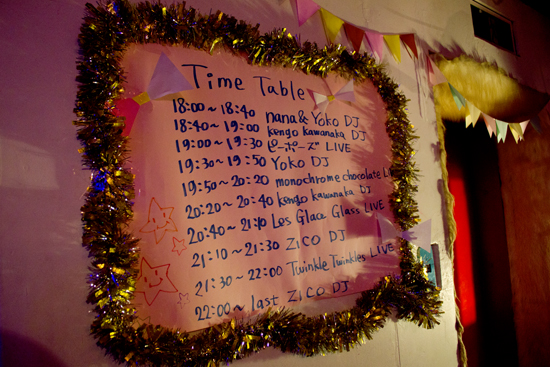 Time Table
18:00~18:40 nana& Yoko DJ
18:40~19:00 kengo kawanaka DJ
19:00~19:30 ピーポーズ LIVE
19:30~19:50 Yoko DJ
19:50~20:20 monochrome chocolate LI
20:20~20:40 kengo kawanaka DJ
20:40~21:10 Les Glace Glass LIVE
21:10~21:30 ZICO DJ
21:30~22:00 Twinkle Twinkles LIVE
22:00~last ZICO DJ